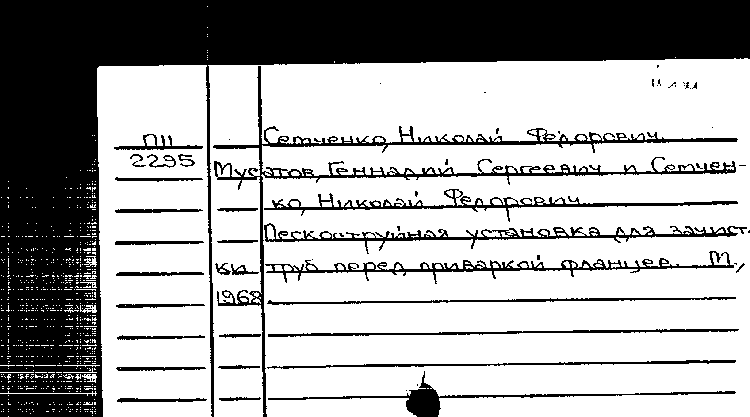 Сетченко, Николай Федорович.
П11
2295
Мусатов, Геннадий Сергеевич и Сетчен-
ко, Николай Федорович.
Пескоструйная установка для зачист-
ки труб перед приваркой фланцев. М.,
1968